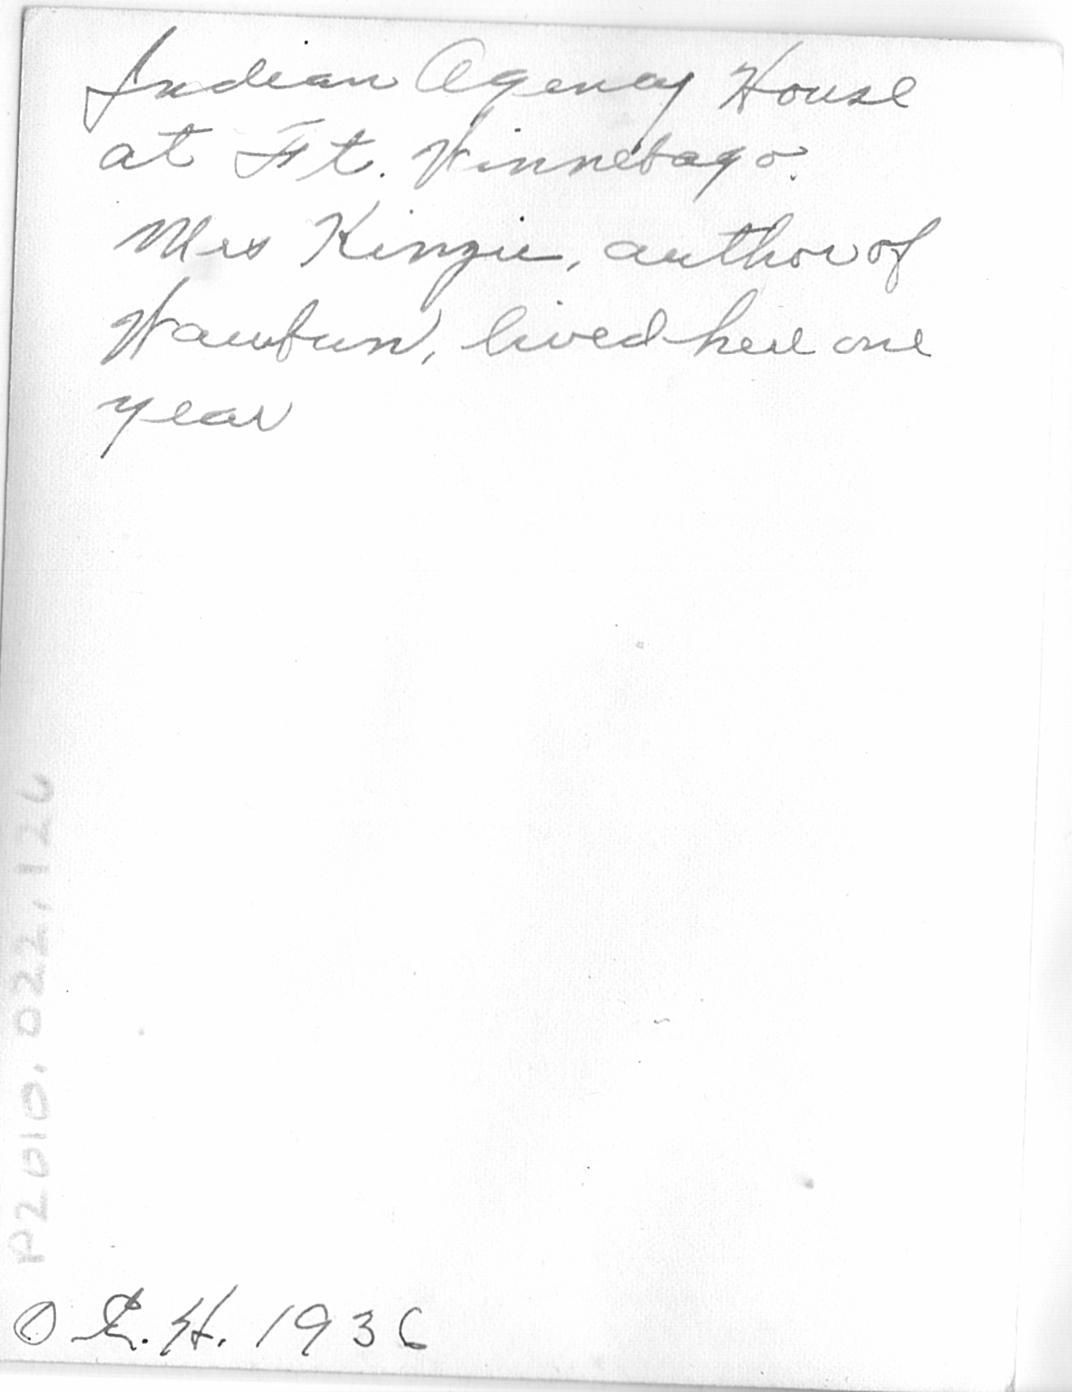 Indian Agency House
at Ft. Winnebago.
Mrs Kinzie, author of
Waubun, lived here one
year
P2010.022.126
H. 1936